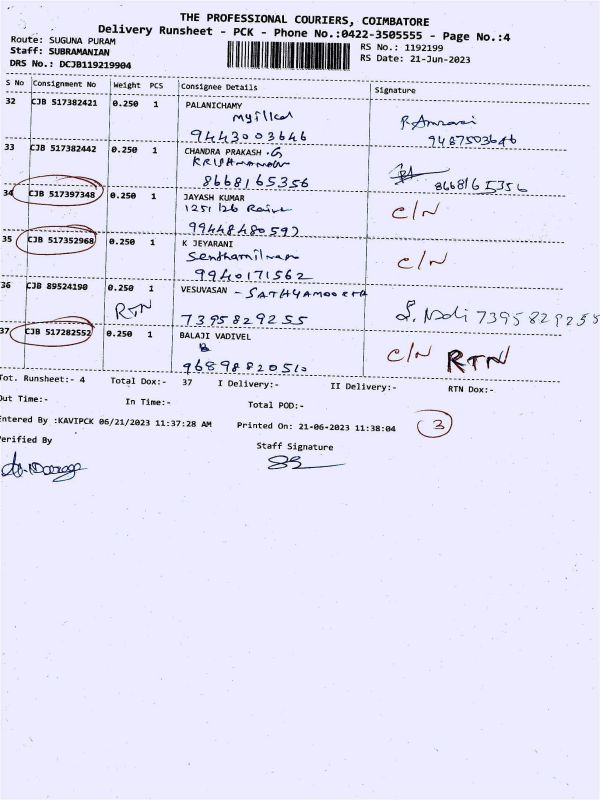 THE PROFESSIONAL COURIERS, COIMBATORE
Delivery Runsheet - PCK - Phone No.:0422-3505555 - Page No.:4
Route: SUGUNA PURAM
Staff: SUBRAMANIAN
DRS No.: DCJB119219904
RS No.: 1192199
RS Date: 21-Jun-2023
S No Consignment No Weight PCS Consignee Details Signature
32 CJB 517382421 0.250 1 PALANICHAMY
9443003646
9487503646
33 CJB 517382442 0.250 1 CHANDRA PRAKASH .G
8668165356
8668165356
34 CJB 517397348 0.250 1 JAYASH KUMAR
C/N
9944848059
35 CJB 517352968 0.250 1 K JEYARANI
C/N
9940171562
36 CJB 89524190 0.250 1 VESUVASAN - SATHYAMOORTH
RTN
7395829255
7395829255
37 CJB 517282552 0.250 1 BALAJI VADIVEL
B
C/N RTN
9689882051
Tot. Runsheet:- 4 Total Dox:- 37 I Delivery:- II Delivery:- RTN Dox:-
Out Time:- In Time:- Total POD:-
Entered By :KAVIPCK 06/21/2023 11:37:28 AM Printed On: 21-06-2023 11:38:04
3
Verified By
Staff Signature